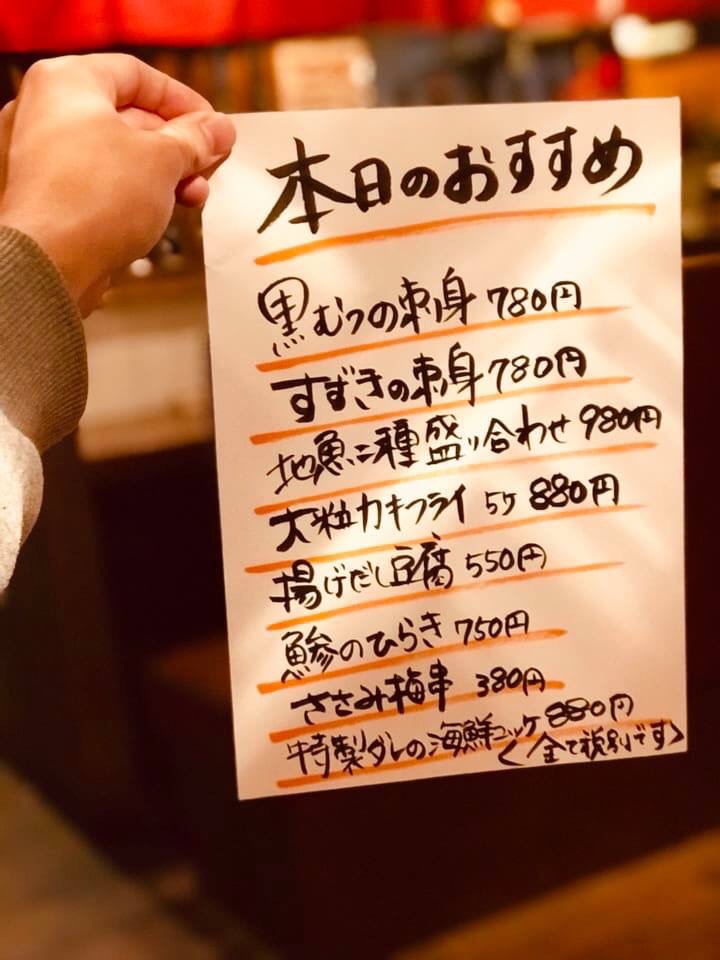 本日のおすすめ
黒むつの刺身 780円
すずきの刺身 780円
地魚二種盛り合わせ 980円
大粒カキフライ 5ケ 880円
揚げだし豆腐 550円
鯵のひらき 750円
ささみ梅串 380円
特製ダレの海鮮ユッケ 880円
<全て税別です>